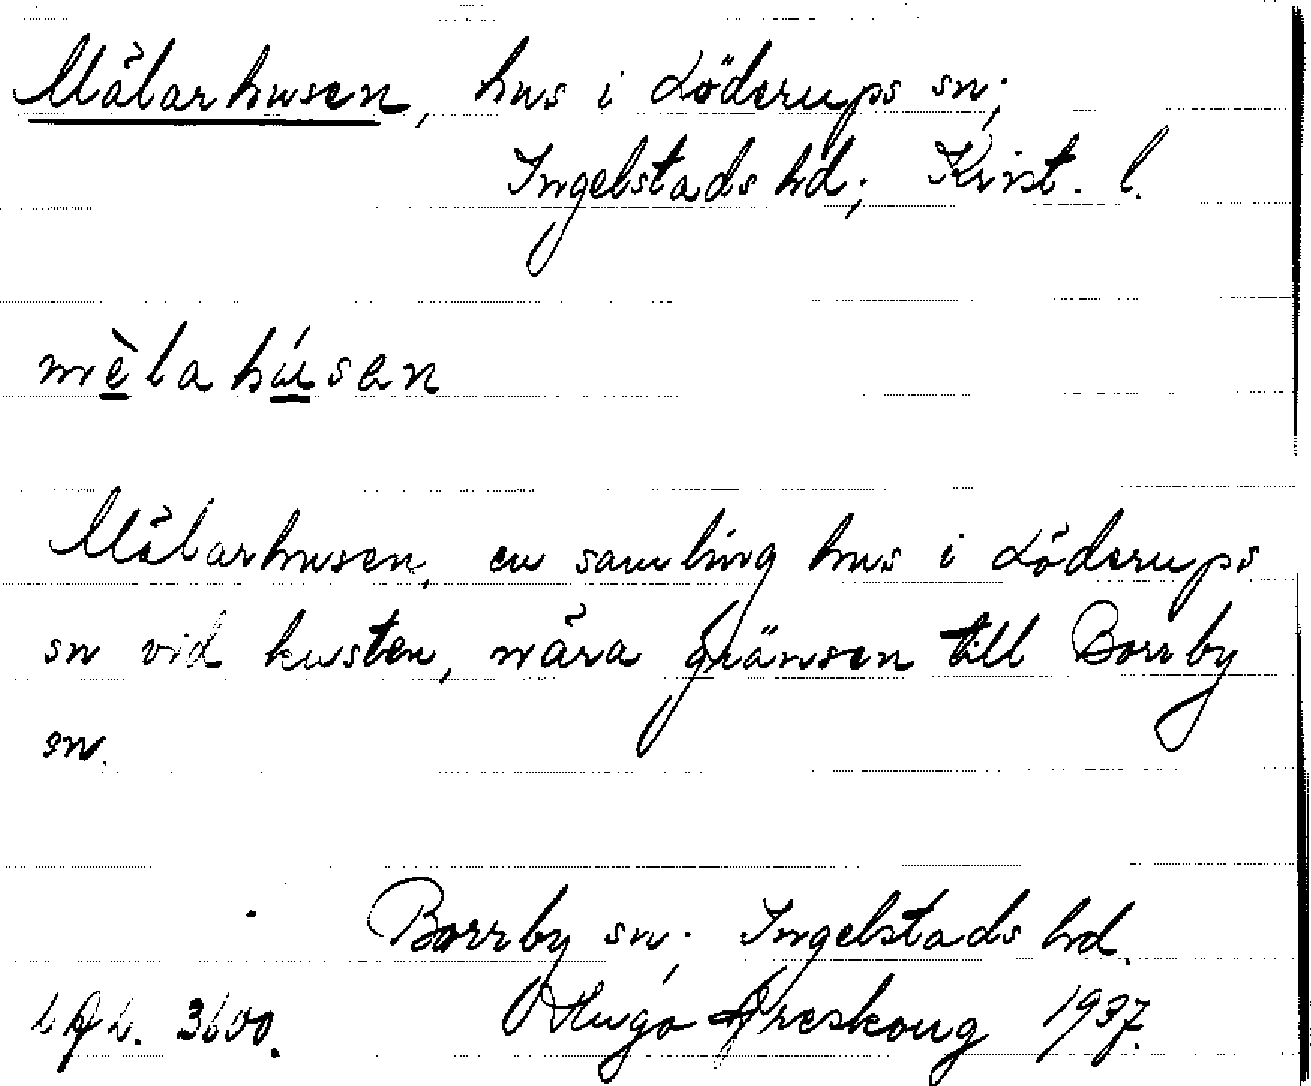 Mälarhusen, hus i Löderups sn;
Ingelstads hd; Krist. l.
mèlahúsen
Mälarhusen, en samling hus i Löderups
sn vid kusten, nära gränsen till Borrby
sn.
Borrby sn; Ingelstads hd.
3600. Hugo Areskoug 1937.